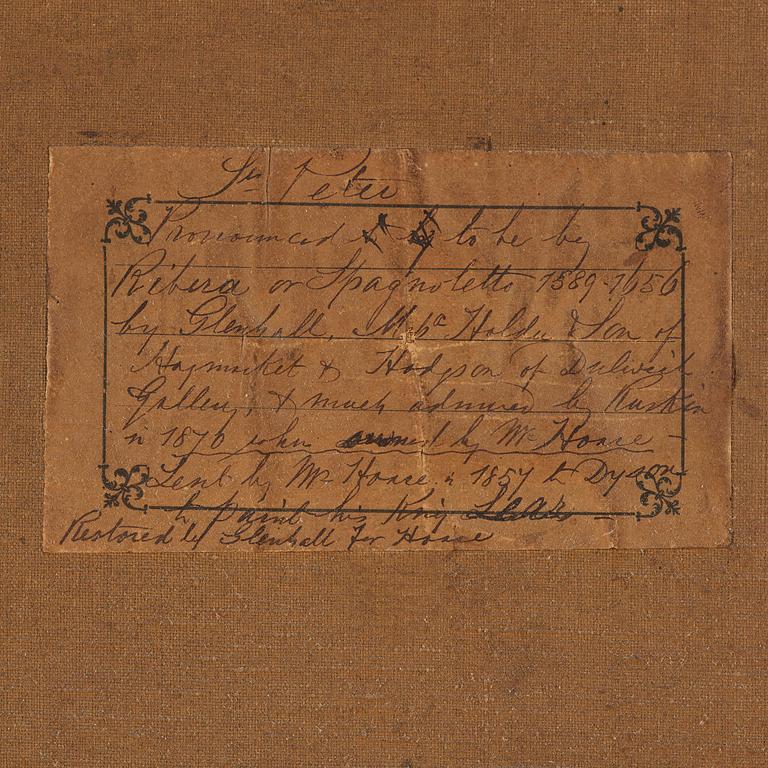 St. Peter
Pronounced to be by
Ribera or Spagnoletto 1589-1656
by Glenhall, Holder & Son of
Haymarket & Hodgson of Dulwich
Gallery, & much admired by Ruskin
in 1870 when owned by Mr Hoare -
Lent by Mr Hoare in 1857 to Dyson
to paint his King Lear -
Restored by Glenhall For Hoare